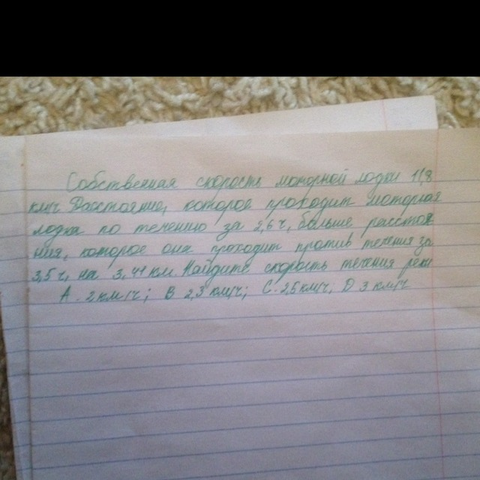 Собственная скорость моторной лодки 11,8
км/ч Расстояние, которое проходит моторная
лодка по течению за 2,6 ч, больше расстоя
ния, которое она проходит против течения за
3,5 ч, на 3,41 км Найдите скорость течения реки
А. 2 км/ч; В 2,3 км/ч; С. 2,5 км/ч, D 3 км/ч